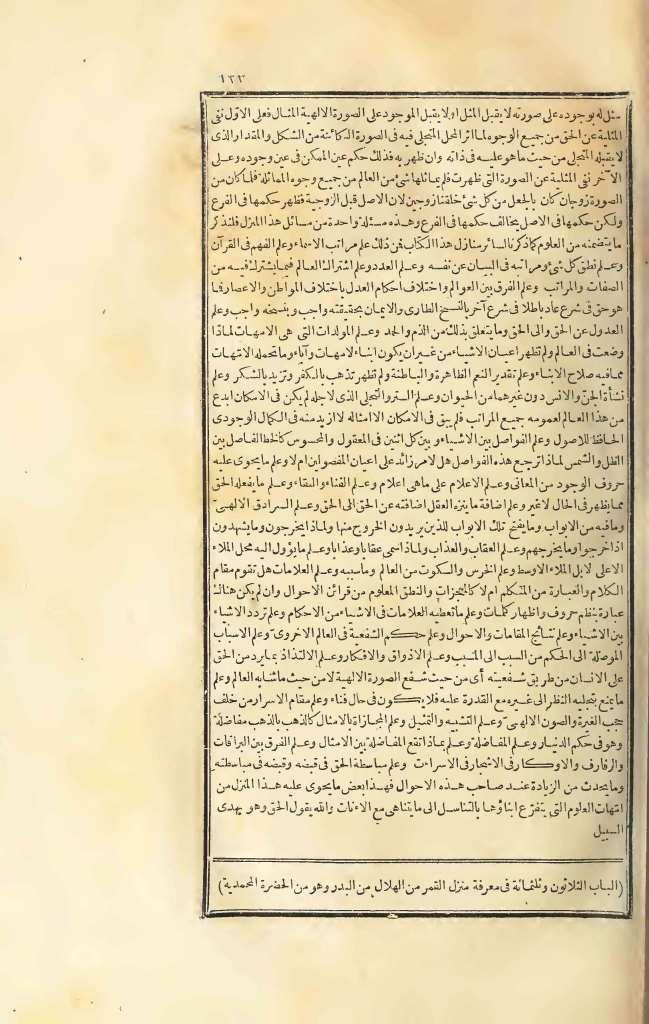 ١٢٣
مثل له بوجوده على صورته لا يقبل المثل او لا يقبل الموجود على الصورة الالهية المثال فعلى الاوّل نفى
المثلية عن الحق من جميع الوجوه لما اثر المحل المتجلى فيه فى الصورة الكائنة من الشكل والمقدار الذى
لا يقبله المتجلى من حيث ما هو عليه فى ذاته وان ظهر به فذلك حكم عين الممكن فى عين وجوده وعلى
الآخر نفى المثلية عن الصورة التى ظهرت فلم يماثلها شئ من العالم من جميع وجوه المماثلة فلما كان من
الصورة زوجان كان بالجعل من كل شئ خلقنا زوجين لان الاصل قبل الزوجية فظهر حكمها فى الفرع
ولكن حكمها فى الاصل يخالف حكمها فى الفرع وهذه مسئلة واحدة من مسائل هذا المنزل فلنذكر
ما يتضمنه من العلوم كما ذكرنا لسائر منازل هذا الكتاب فمن ذلك علم مراتب الاسماء وعلم الفهم فى القرآن
وعلم نطق كل شئ ومراتبه فى البيان عن نفسه وعلم العدد وعلم اشتراك العالم فيما يشترك فيه من
الصفات والمراتب وعلم الفرق بين العوالم واختلاف احكام العدل باختلاف المواطن والاعصار فما
هو حق فى شرع عاد باطلا فى شرع آخر بالنسخ الطارى والايمان بحقيقته واجب وبنسخه واجب وعلم
العدول عن الحق والى الحق وما يتعلق بذلك من الذم والحمد وعلم المولدات التى هى الامهات لماذا
وضعت فى العالم ولم تظهر اعيان الاشياء من غير ان يكون ابناء لامهات وآباء وما تحمله الامهات
مما فيه صلاح الابناء وعلم تقدير النعم الظاهرة والباطنة ولم تظهر تذهب بالكفر وتزيد بالشكر وعلم
نشأة الجنّ والانس دون غيرهما من الحيوان وعلم الستر والتجلى الذى لاجله لم يكن فى الامكان ابدع
من هذا العالم لعمومه جميع المراتب فلم يبق فى الامكان الا امثاله لا ازيد منه فى الكمال الوجودى
الحافظ للاصول وعلم الفواصل بين الاشياء وبين كل اثنين فى المعقول والمحسوس كالخط الفاصل بين
الظل والشمس لماذا ترجع هذه الفواصل هل لامر زائد على اعيان المفصولين ام لا وعلم ما يحوى عليه
حروف الوجود من المعانى وعلم الاعلام على ماهى اعلام وعلم الفناء والبقاء وعلم ما يفعله الحق
مما يظهر فى الحال لا غير وعلم اضافة ما ينزه العقل اضافته عن الحق الى الحق وعلم السرادق الالهىّ
وما فيه من الابواب وما يفتح تلك الابواب للذين يريدون الخروج منها ولماذا يخرجون وما يشهدون
اذا خرجوا وما يخرجهم وعلم العقاب والعذاب ولماذا اسمى عقابا وعذابا وعلم ما يؤول اليه محل الملاء
الاعلى لابل الملاء الاوسط وعلم الخرس والسكوت من العالم وما سببه وعلم العلامات هل تقوم مقام
الكلام والعبارة من المتكلم ام لا كالمعجزات والنطق المعلوم من قرائن الاحوال وان لم يكن هنالك
عبارة بنظم حروف واظهار كلمات وعلم ما تعطيه العلامات فى الاشياء من الاحكام وعلم تردد الاشياء
بين الاشياء وعلم نتائج المقامات والاحوال وعلم حكم الشفعية فى العالم الاخروىّ وعلم الاسباب
الموصلة الى الحكم من السبب الى المسبب وعلم الاذواق والافكار وعلم الالتذاذ بما يرد من الحق
على الانسان من طريق شفعيته أى من حيث شفع الصورة الالهية لا من حيث ماشابه العالم وعلم
ما يمنع بتجليه النظر الى غيره مع القدرة عليه فلا يكون فى حال فناء وعلم مقام الاسرار من خلف
حجب الغيرة والصون الالهىّ وعلم التشبيه والتمثيل وعلم المجازاة بالامثال كالذهب بالذهب مفاضلة
وهو فى حكم الدنيا وعلم المفاضلة وعلم بماذا تقع المفاضلة بين الامثال وعلم الفرق بين البراقات
والرفارف والاوكار فى الاشجار فى الاسراءت وعلم مباسطة الحق فى قبضه وقبضه فى مباسطته
وما يحدث من الزيادة عند صاحب هذه الاحوال فهذا بعض ما يحوى عليه هذا المنزل من
امهات العلوم التى يتفرع ابناؤها بالتناسل الى ما يتناهى مع الاٰنات والله يقول الحق وهو يهدى
السبيل
(الباب الثلاثون وثلثمائة فى معرفة منزل القمر من الهلال من البدر وهو من الحضرة المحمدية)